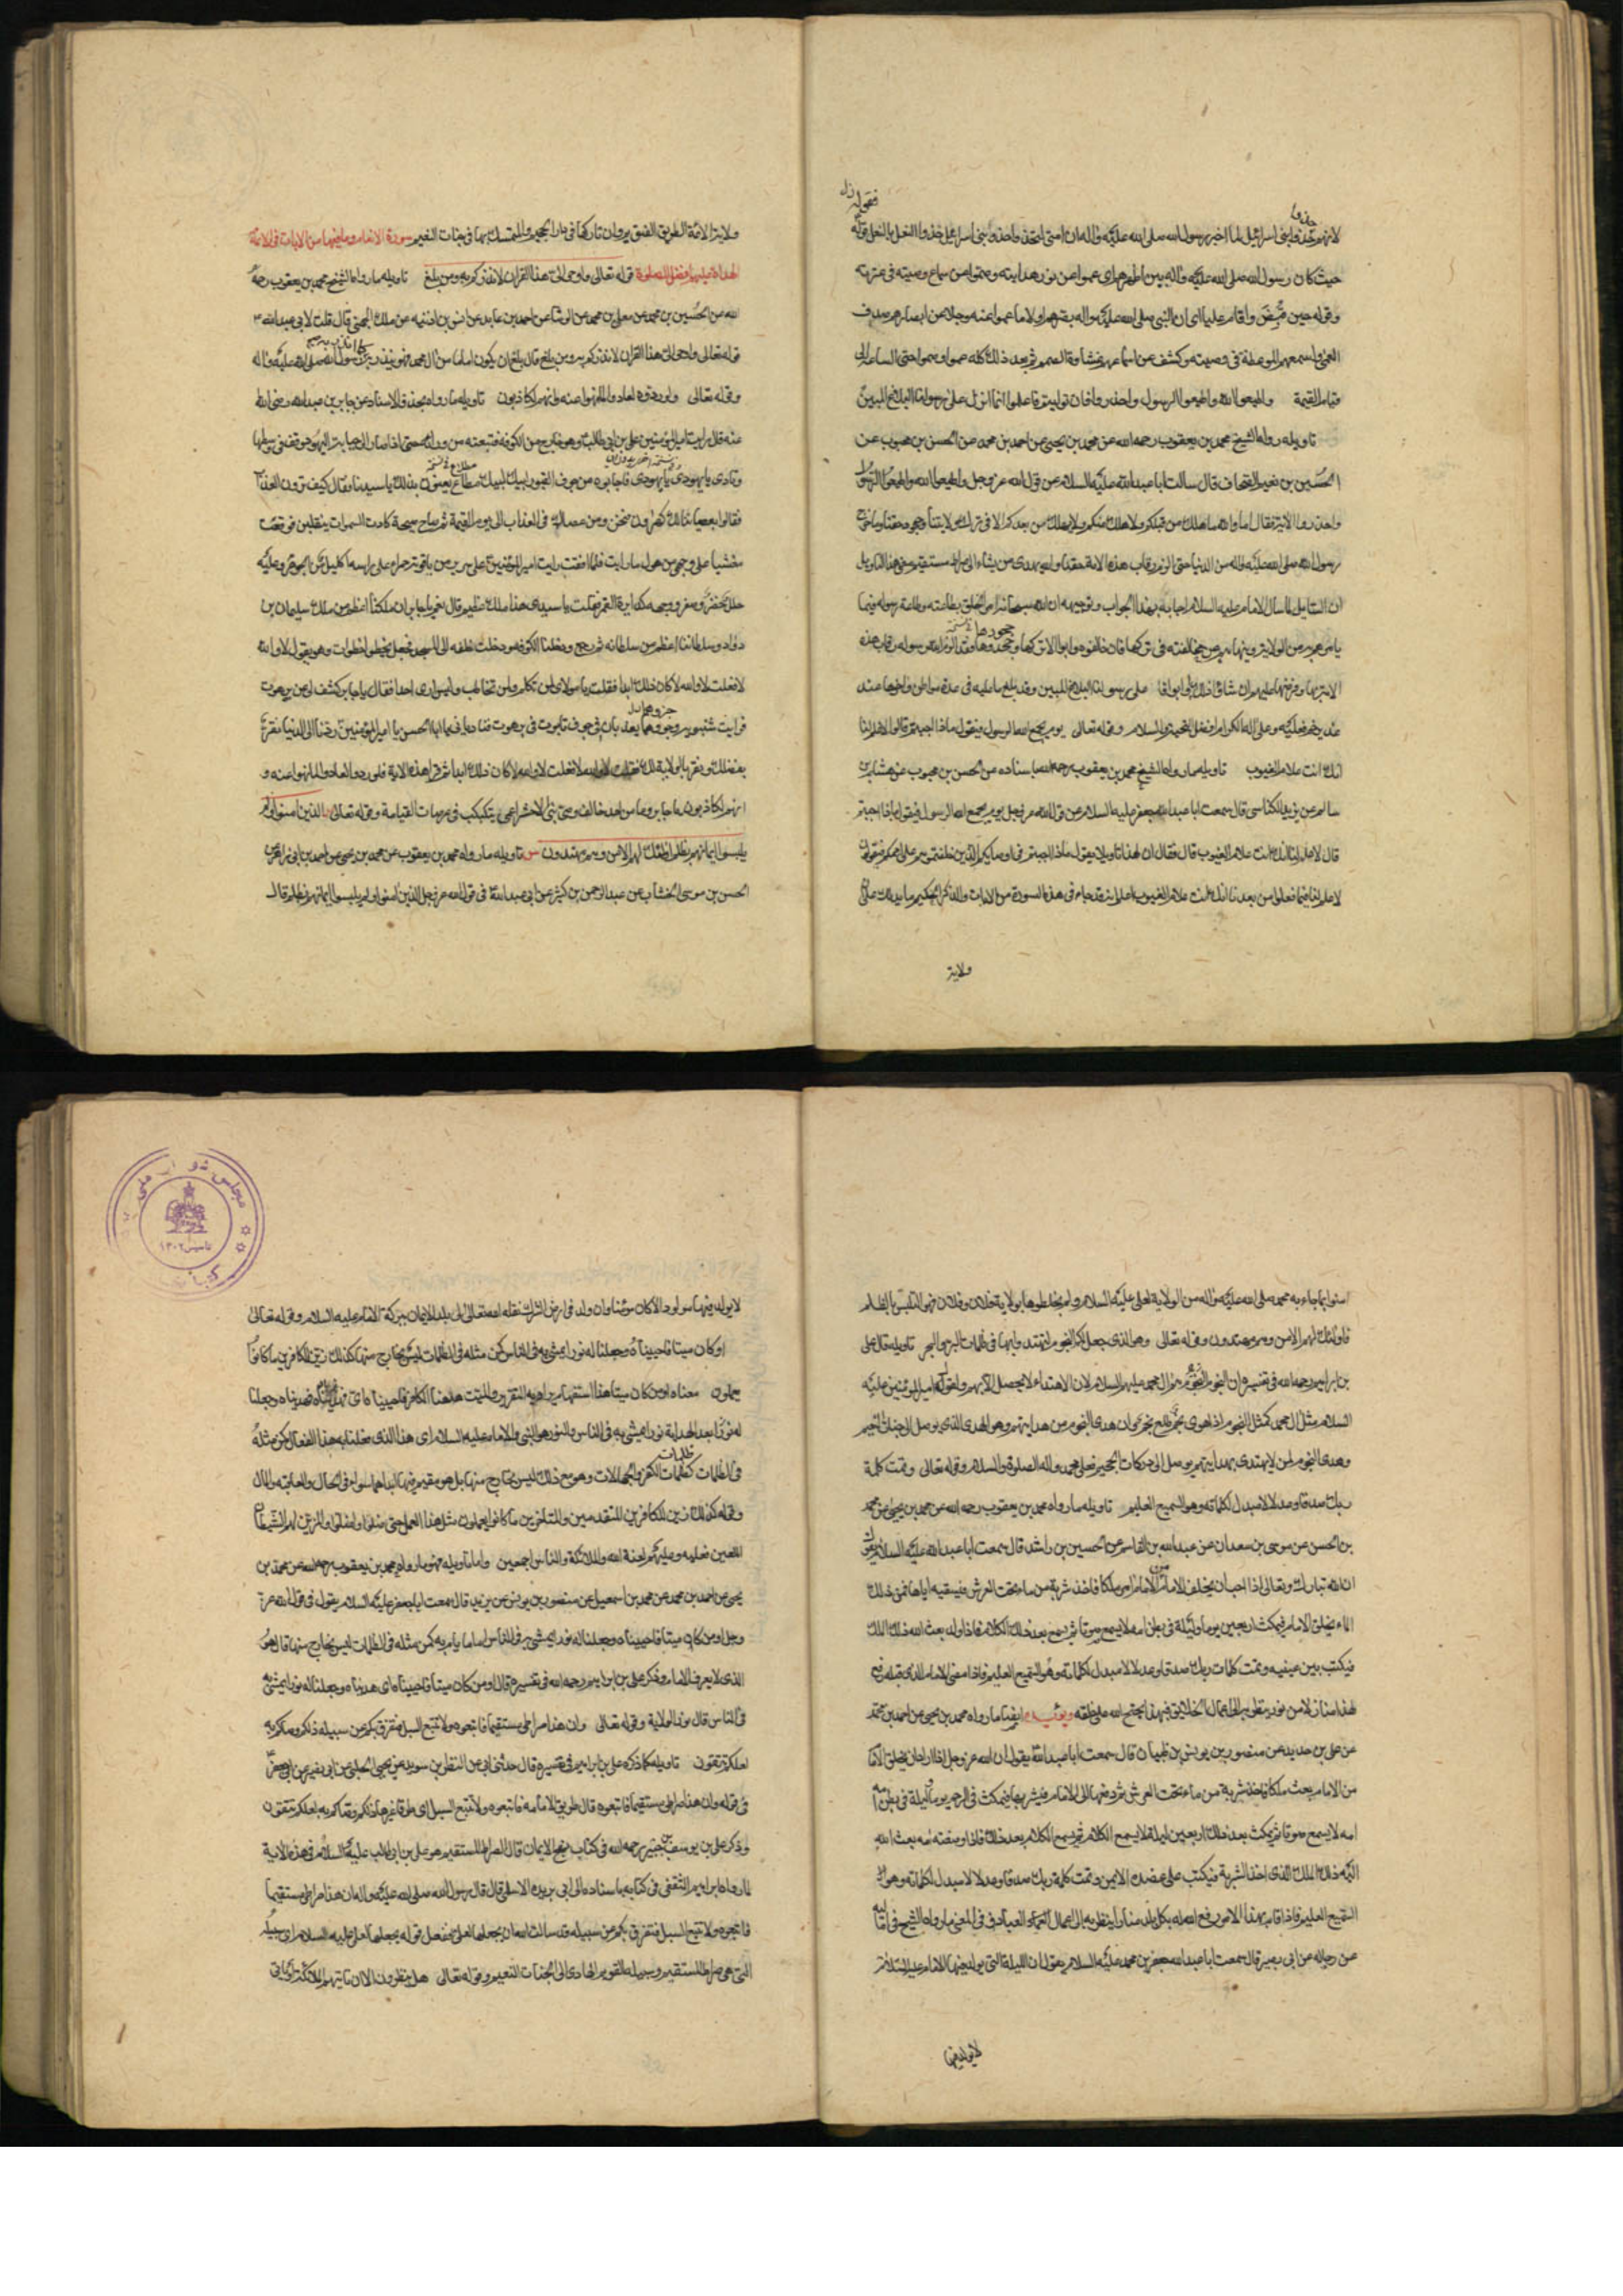 لانهم حذوا بنى اسرائيل لما اخبر رسول الله صلى الله عليه واله ان امتى لتحذوا حذو بنى اسرائيل حذو النعل بالنعل
حيث كان رسول الله صلى الله عليه واله بين اظهرهم اى عموا عن نور هدايته وصموا عن سماع وصيته فى عترته
وقوله حين قبض واقام عليا اى ان النبى صلى الله عليه واله بصرهم اولا ما عموا عنه وجلا عن ابصارهم صدف
العمى واسمعهم الموعظة فى وصيته وكشف عن اسماعهم غشاوة الصمم ثم بعد ذلك كله عموا وصموا حتى الساعة الى
قيام القيمة واطيعوا الله واطيعوا الرسول واحذروا فان توليتم فاعلموا انما على رسولنا البلاغ المبين
تاويله رواه الشيخ محمد بن يعقوب رحمه الله عن محمد بن يحيى عن احمد بن محمد عن الحسن بن محبوب عن
الحسين بن نعيم الصحاف قال سالت ابا عبد الله عليه السلام عن قول الله عز وجل واطيعوا الله واطيعوا الرسول
واحذروا الاية فقال اما والله ما هلك من قبلكم ولا هلك منكم ولا يهلك من بعدكم الا فى ترك ولايتنا وجحود حقنا وما خرج
رسول الله صلى الله عليه واله من الدنيا حتى الزم رقاب هذه الامة حقنا والله يهدى من يشاء الى صراط مستقيم ومعنى هذا التاويل
ان السايل لما سال الامام عليه السلام اجابه بهذا الجواب وتوجيهه ان الله سبحانه امر الخلق بطاعته وطاعة رسوله فيما
يامرهم به من الولاية وينهاهم عن مخالفته فى تركها فان خالفوه وابوا الا تركها وجحدوها فقد الزم الله رسوله رقاب هذه
الامة بها وفرضها عليهم ان شاؤا ذلك وابوا فما على رسولنا البلاغ المبين وقد بلغ ما عليه فى عدة مواطن واخرها عند
غدير خم فعليه وعلى اله الكرام افضل التحية والسلام وقوله تعالى يوم يجمع الله الرسل فيقول ماذا اجبتم قالوا لا علم لنا
انك انت علام الغيوب تاويله ما رواه الشيخ محمد بن يعقوب رحمه الله باسناده عن الحسن بن محبوب عن هشام بن
سالم عن يزيد الكناسى قال سمعت ابا عبد الله جعفر عليه السلام عن قول الله عز وجل يوم يجمع الله الرسل فيقول ماذا اجبتم
قالوا لا علم لنا انك انت علام الغيوب قال فقال ان لهذا تاويلا يقول ماذا اجبتم فى اوصيائكم الذين خلفتموهم على اممكم فيقولون
لا علم لنا بما فعلوا من بعدنا انك انت علام الغيوب اعلم انه قد جاء فى هذه السورة من الايات والذكر الحكيم ما يدل على
ولاية
ولاية الائمة الطريق القويم وان تاركها فى دار الجحيم والمتمسك بها فى جنات النعيم سورة الانعام وما فيها من الايات فى الائمة
الهداة عليهم افضل الصلوة قوله تعالى واوحى الى هذا القران لانذركم به ومن بلغ تاويله ما رواه الشيخ محمد بن يعقوب رحمه
الله عن الحسين بن محمد عن معلى بن محمد عن الوشا عن احمد بن عايذ عن ابن اذينه عن ملك الجهنى قال قلت لابى عبد الله
قوله تعالى واوحى الى هذا القران لانذركم به ومن بلغ قال بلغ ان يكون اماما من ال محمد فهو ينذر به كما انذر به رسول الله صلى الله عليه واله
وقوله تعالى ولو ردوا لعادوا لما نهوا عنه وانهم لكاذبون تاويله ما رواه بحذف الاسناد عن جابر بن عبد الله رضى الله
عنه قال رايت امير المؤمنين على بن ابى طالب وهو خارج من الكوفه فتبعته من ورائه حتى اذا صار الى جبانة اليهود وقف فى وسطها
ونادى يا يهود يا يهود فاجابوه من جوف القبور لبيك لبيك مطاع يعنون بذلك يا سيدنا فقال كيف ترون العذاب
فقالوا بعصياننا لك كهرون فنحن ومن عصاك فى العذاب الى يوم القيمة ثم صاح صيحة كادت السموات ينقلبن فوقعت
مغشيا على وجهى من هول ما رايت فلما افقت رايت امير المؤمنين على سرير من ياقوتة حمراء على راسه اكليل من الجوهر وعليه
حلل خضر وصفر ووجهه كدايرة القمر فقلت يا سيدى هذا ملك عظيم قال نعم يا جابر ان ملكنا اعظم من ملك سليمان بن
داود وسلطاننا اعظم من سلطانه ثم رجع ودخلنا الكوفه ودخلت خلفه الى المسجد فجعل يخطوا خطوات وهو يقول لا والله
لا فعلت لا والله لا كان ذلك ابدا فقلت يا مولاى لمن تكلم ولمن تخاطب وليس ارى احدا فقال يا جابر كشف لى عن برهوت
فرايت شنبويه وحبتر وهما يعذبان فى جوف تابوت فى برهوت فنادانى يا ابا الحسن يا امير المؤمنين ردنا الى الدنيا نقر
بفضلك ونقر بالولاية لك فقلت لا والله لا فعلت لا والله لا كان ذلك ابدا ثم قرا هذه الاية ولو ردوا لعادوا لما نهوا عنه و
انهم لكاذبون يا جابر وما من احد خالف وصى نبى الا حشر اعمى يتكبكب فى عرصات القيامة وقوله تعالى الذين امنوا ولم
يلبسوا ايمانهم بظلم اولئك لهم الامن وهم مهتدون تاويله ما رواه محمد بن يعقوب عن محمد بن يحيى عن احمد بن ابى زاهر عن
الحسن بن موسى الخشاب عن عبد الرحمن بن كثير عن ابى عبد الله فى قول الله عز وجل الذين امنوا ولم يلبسوا ايمانهم بظلم قال
امنوا بما جاء به محمد صلى الله عليه واله من الولاية لعلى عليه السلام ولم يخلطوها بولاية فلان وفلان فهو التلبس بالظلم
فاولئك لهم الامن وهم مهتدون وقوله تعالى وهو الذى جعل لكم النجوم لتهتدوا بها فى ظلمات البر والبحر تاويله قال على
بن ابراهيم رحمه الله فى تفسيره ان النجوم هم ال محمد عليهم السلام لان الاهتداء لا يحصل الا بهم ولقول امير المؤمنين عليه
السلام مثل ال محمد كمثل النجوم اذا هوى نجم طلع نجم وان هدى النجوم من هدايتهم وهو الهدى الذى يوصل الى جنات النعيم
وهدى النجوم لمن لا يهتدى بهدايتهم يوصل الى دركات الجحيم فعلى محمد واله الصلوة والسلام وقوله تعالى وتمت كلمة
ربك صدقا وعدلا لا مبدل لكلماته وهو السميع العليم تاويله ما رواه محمد بن يعقوب رحمه الله عن محمد بن يحيى عن محمد
بن الحسن عن موسى بن سعدان عن عبد الله بن القاسم عن الحسين بن راشد قال سمعت ابا عبد الله عليه السلام يقول
ان الله تبارك وتعالى اذا احب ان يخلق الامام من الامام امر ملكا فاخذ شربة من ماء تحت العرش فيسقيه اياها فمن ذلك
الماء يخلق الامام فيمكث اربعين يوما وليلة فى بطن امه لا يسمع صوتا ثم يسمع بعد ذلك الكلام فاذا ولد بعث الله ذلك الملك
فيكتب بين عينيه وتمت كلمات ربك صدقا وعدلا لا مبدل لكلماته وهو السميع العليم فاذا مضى الامام الذى قبله رفع
لهذا منار من نور ينظر به الى اعمال الخلايق فبهذا يحتج الله على خلقه ويؤيده ايضا ما رواه محمد بن يحيى عن احمد بن محمد
عن على بن حديد عن منصور بن يونس بن ظبيان قال سمعت ابا عبد الله يقول ان الله عز وجل اذا اراد ان يخلق الامام
من الامام بعث ملكا فاخذ شربة من ماء تحت العرش ثم دفعها الى الامام فيشربها فيمكث فى الرحم يوما وليلة فى بطن
امه لا يسمع صوتا ثم يمكث بعد ذلك اربعين ليلة لا يسمع الكلام ثم يسمع الكلام بعد ذلك فاذا وضعته امه بعث الله
اليه ذلك الملك الذى اخذ الشربة فيكتب على عضده الايمن وتمت كلمة ربك صدقا وعدلا لا مبدل لكلماته وهو
السميع العليم فاذا قام بهذا الامر رفع الله له بكل بلد منارا ينظر به الى اعمال العباد وفى المعنى ما رواه الشيخ فى اماليه
عن رجاله عن ابى بصير قال سمعت ابا عبد الله جعفر بن محمد عليه السلام يقول ان الليلة التى يولد فيها الامام عليه السلام
لا يولد فيها
لا يولد فيها مولود الا كان مؤمنا وان ولد فى ارض الشرك نقله الله تعالى الى بلد الايمان ببركة الامام عليه السلام وقوله تعالى
او كان ميتا فاحييناه وجعلنا له نورا يمشى به فى الناس كمن مثله فى الظلمات ليس بخارج منها كذلك زين للكافرين ما كانوا
يعملون معناه اومن كان ميتا هذا استفهام يراد به التقرير والميت هاهنا الكافر فاحييناه اى فهديناه وجعلنا
له نورا بعد الهداية نورا يمشى به فى الناس والنور هو النبى والامام عليه السلام اى هذا الذى فعلنا به هذا الفعال كمن مثله
فى الظلمات ظلمات الكفر والجهالات وهو مع ذلك ليس بخارج منها بل هو مقيم فيها ابدا هما سواء فى الحال والعاقبه والمال
وقوله كذلك زين للكافرين المتقدمين والمتاخرين ما كانوا يعملون مثل هذا العمل حتى ضلوا واضلوا والمزين لهم الشيطان
اللعين فعليه وعليهم لعنة الله والملائكة والناس اجمعين واما تاويله فهو ما رواه محمد بن يعقوب رحمه الله عن محمد بن
يحيى عن احمد بن محمد عن محمد بن اسمعيل عن منصور بن يونس عن بريد قال سمعت ابا جعفر عليه السلام يقول فى قول الله عز
وجل اومن كان ميتا فاحييناه وجعلنا له نورا يمشى به فى الناس اماما ياتم به كمن مثله فى الظلمات ليس بخارج منها قال هو
الذى لا يعرف الامام وذكر على بن ابراهيم رحمه الله فى تفسيره قال اومن كان ميتا فاحييناه اى هديناه وجعلنا له نورا يمشى به
فى الناس قال نور الولاية وقوله تعالى وان هذا صراطى مستقيما فاتبعوه ولا تتبعوا السبل فتفرق بكم عن سبيله ذلكم وصيكم به
لعلكم تتقون تاويله ما ذكره على بن ابراهيم فى تفسيره قال حدثنى ابى عن النضر بن سويد عن يحيى الحلبى عن ابى بصير عن ابى جعفر
فى قوله وان هذا صراطى مستقيما فاتبعوه قال طريق الامامه فاتبعوه ولا تتبعوا السبل اى طرقا غيرها ذلكم وصاكم به لعلكم تتقون
وذكر على بن يوسف بن جبير رحمه الله فى كتاب نهج الايمان قال الصراط المستقيم هو على بن ابى طالب عليه السلام فى هذه الاية
لما رواه ابراهيم الثقفى فى كتابه باسناده الى ابى بريده الاسلمى قال قال رسول الله صلى الله عليه واله ان هذا صراطى مستقيما
فاتبعوه ولا تتبعوا السبل فتفرق بكم عن سبيله قد سالت الله ان يجعلها لعلى ففعل قوله يجعلها لعلى عليه السلام اى سبيله
التى هى صراط المستقيم وسبيله القويم الهادى الى الجنات النعيم وقوله تعالى هل ينظرون الا ان تاتيهم الملائكة او ياتى
مجلس شورای ملی
تاسیس ۱۳۰۲